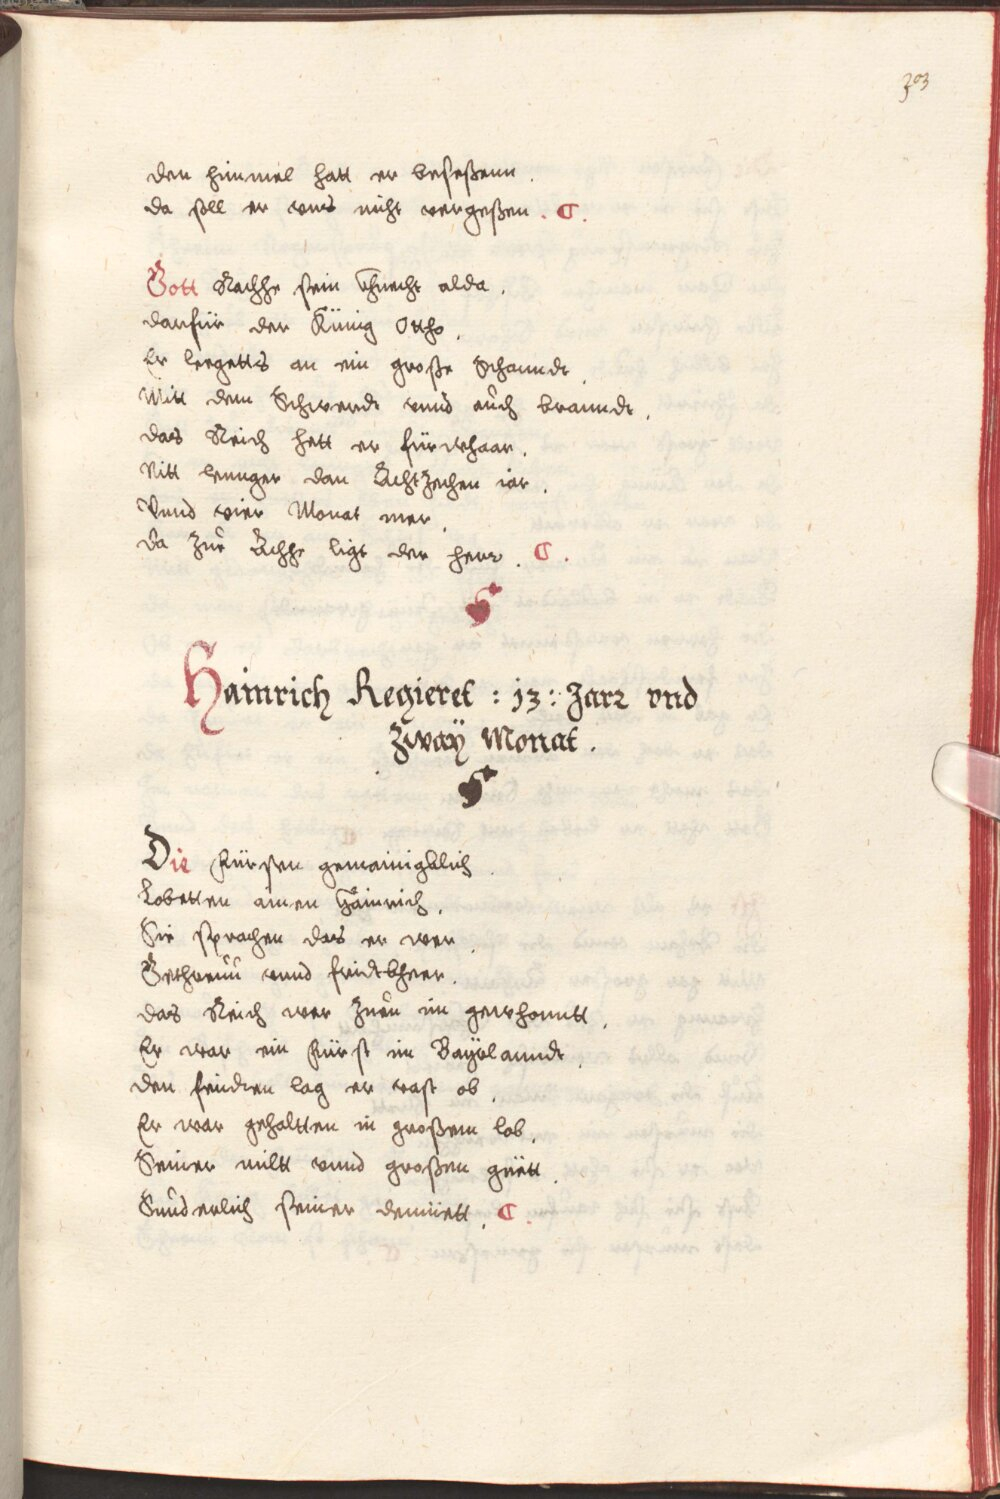 303
den himmel hatt er beseßenn.
da soll er vns nicht vergeßen. C.
Gott Rachhe sein Khnecht alda.
darfür der Künig Ottho.
Er leegetts an ein große Schanndt.
Mitt dem Schwerdt vnnd auch branndt.
das Reich hett er fürwhaar.
Nitt lennger dan Achtzechen iar.
Vnnd vier Monat mer.
da zue Achhe ligt der herr. C.
Hainrich Regieret : 13 : Jarr vnd
Zwaÿ Monat.
Die Fürsten gemainigklich.
Lobetten ainen Hainrich.
Sie sprachen das er wer.
Gethreuu vnnd fridtbheer.
das Reich wer zuen im gewhonntt.
Er war ein Fürst im Baÿrlanndt.
den feindten lag er vast ob.
Er war gehaltten in großem lob.
Seiner miltt vnnd großen guëtt.
Sunderlich seiner demüett. C.